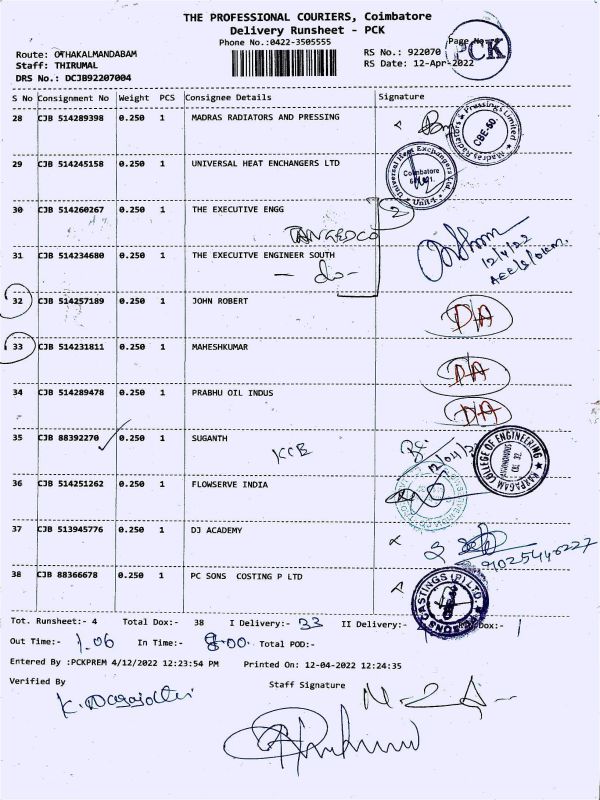 THE PROFESSIONAL COURIERS, Coimbatore
Delivery Runsheet - PCK
Phone No.:0422-3505555
Page No.
PCK
Route: OTHAKALMANDABAM
RS No.: 922070
Staff: THIRUMAL
RS Date: 12-Apr-2022
DRS No.: DCJB92207004
S No Consignment No Weight PCS Consignee Details Signature
28 CJB 514289398 0.250 1 MADRAS RADIATORS AND PRESSING
Madras Radiators & Pressings Limited
CBE-50.
29 CJB 514245158 0.250 1 UNIVERSAL HEAT ENCHANGERS LTD
Universal Heat Exchangers Ltd.
Coimbatore
Unit-1
30 CJB 514260267 0.250 1 THE EXECUTIVE ENGG
2
TANGEDCO
31 CJB 514234680 0.250 1 THE EXECUITVE ENGINEER SOUTH
- do -
12/4/22
32 CJB 514257189 0.250 1 JOHN ROBERT
D/A
33 CJB 514231811 0.250 1 MAHESHKUMAR
D/A
34 CJB 514289478 0.250 1 PRABHU OIL INDUS
D/A
35 CJB 88392270 0.250 1 SUGANTH
KCE
12/04/22
KARPAGAM COLLEGE OF ENGINEERING
36 CJB 514251262 0.250 1 FLOWSERVE INDIA
37 CJB 513945776 0.250 1 DJ ACADEMY
38 CJB 88366678 0.250 1 PC SONS COSTING P LTD
CASTINGS (P) LTD.
Tot. Runsheet:- 4 Total Dox:- 38 I Delivery:- 33 II Delivery:- Dox:- 1
Out Time:- 1.06 In Time:- 8.00 Total POD:-
Entered By :PCKPREM 4/12/2022 12:23:54 PM Printed On: 12-04-2022 12:24:35
Verified By
Staff Signature